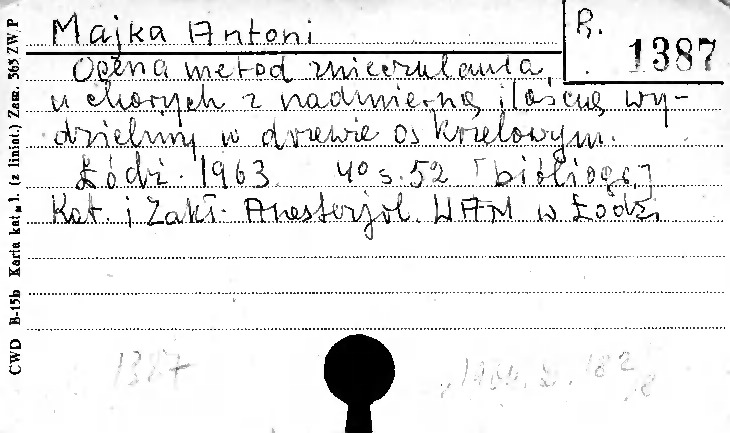 Majka Antoni
R. 1387
Ocena metod znieczulania,
u chorych z nadmierną ilością wy-
dzieliny w drzewie oskrzelowym.
Łódź. 1963. 4° s. 52 [bibliogr.]
Kat. i Zakł. Anestezjol. WAM w Łodzi
1387
CWD B-15b Karta kat. (z liniat.) Zam. 565 ZWP